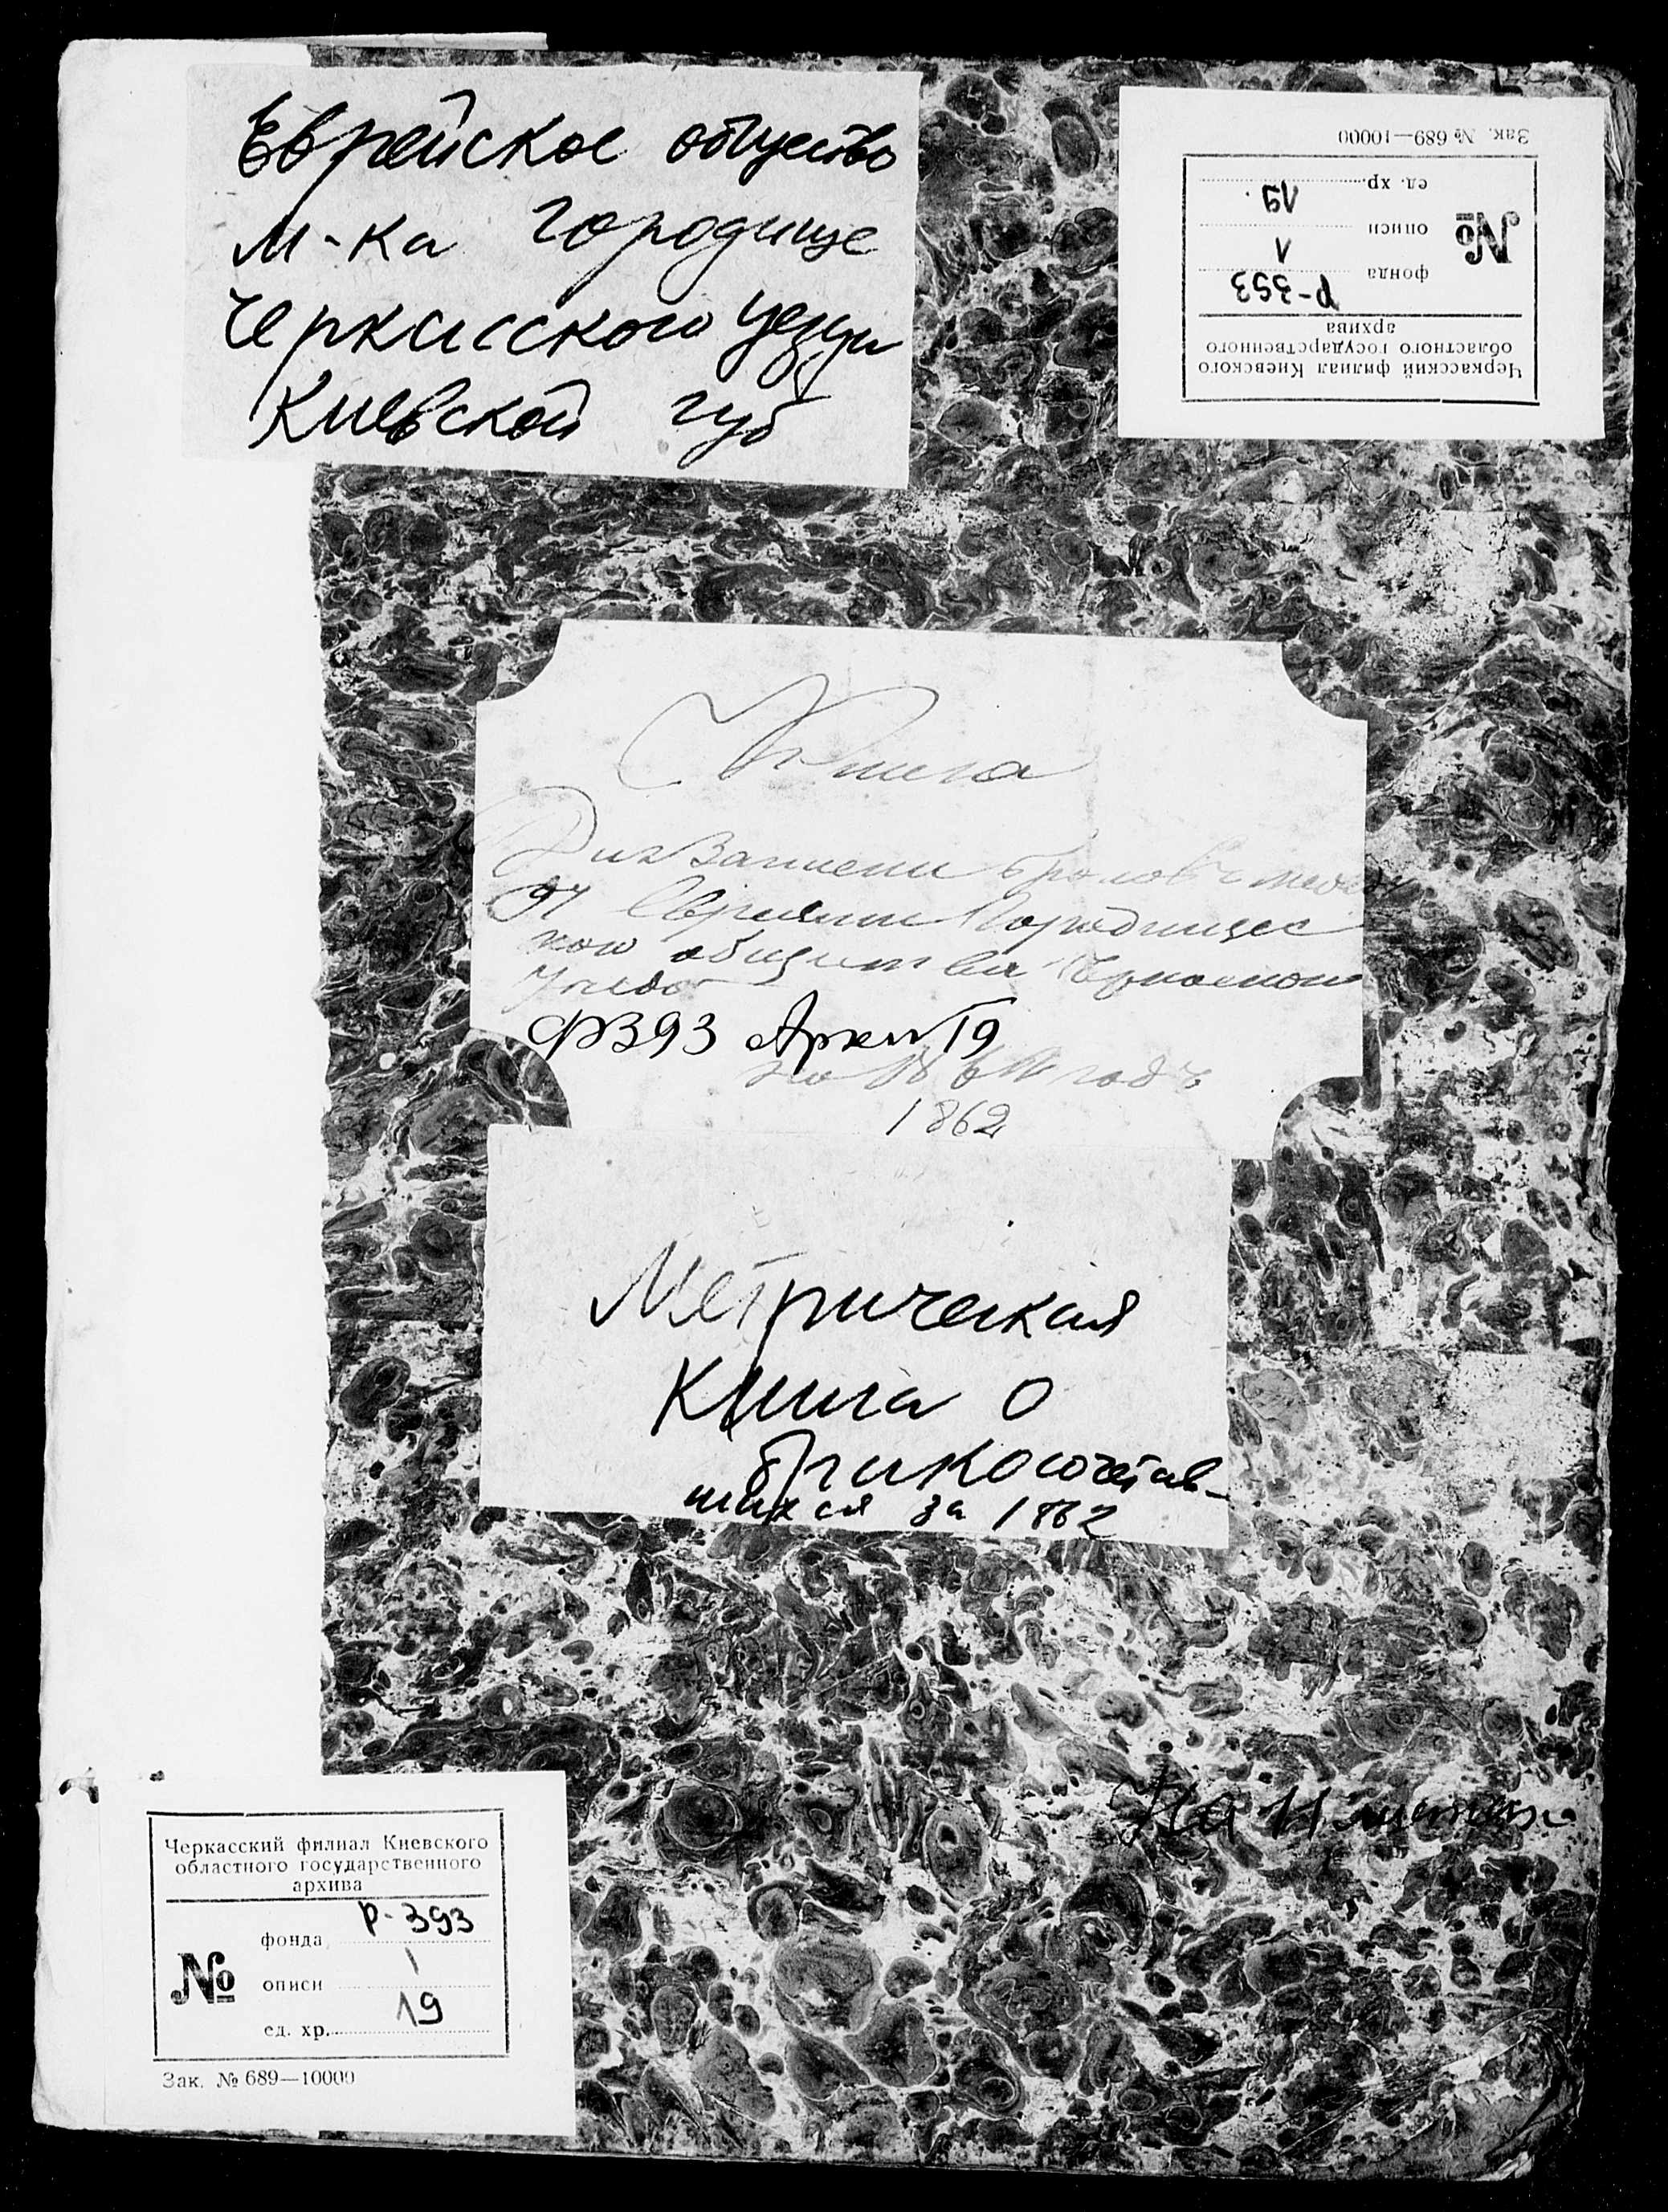 Еврейское общество
м-ка Городище
Черкасского уезда
Киевской губ
Зак. № 689—10000
Черкасский филиал Киевского
областного государственного
архива
фонда Р-393
№ описи 1
ед. хр. 19.
Книга
Для записки браков между
Евреями Городищес
кого общества Черкаского
Уезда
Ф393 Арх№19
на 18 годъ
1862
Метрическая
Книга о
бракосочетав-
шихся за 1862
На 11 листах
Черкасский филиал Киевского
областного государственного
архива
фонда Р-393
№ описи 1
ед. хр. 19
Зак. № 689—10000